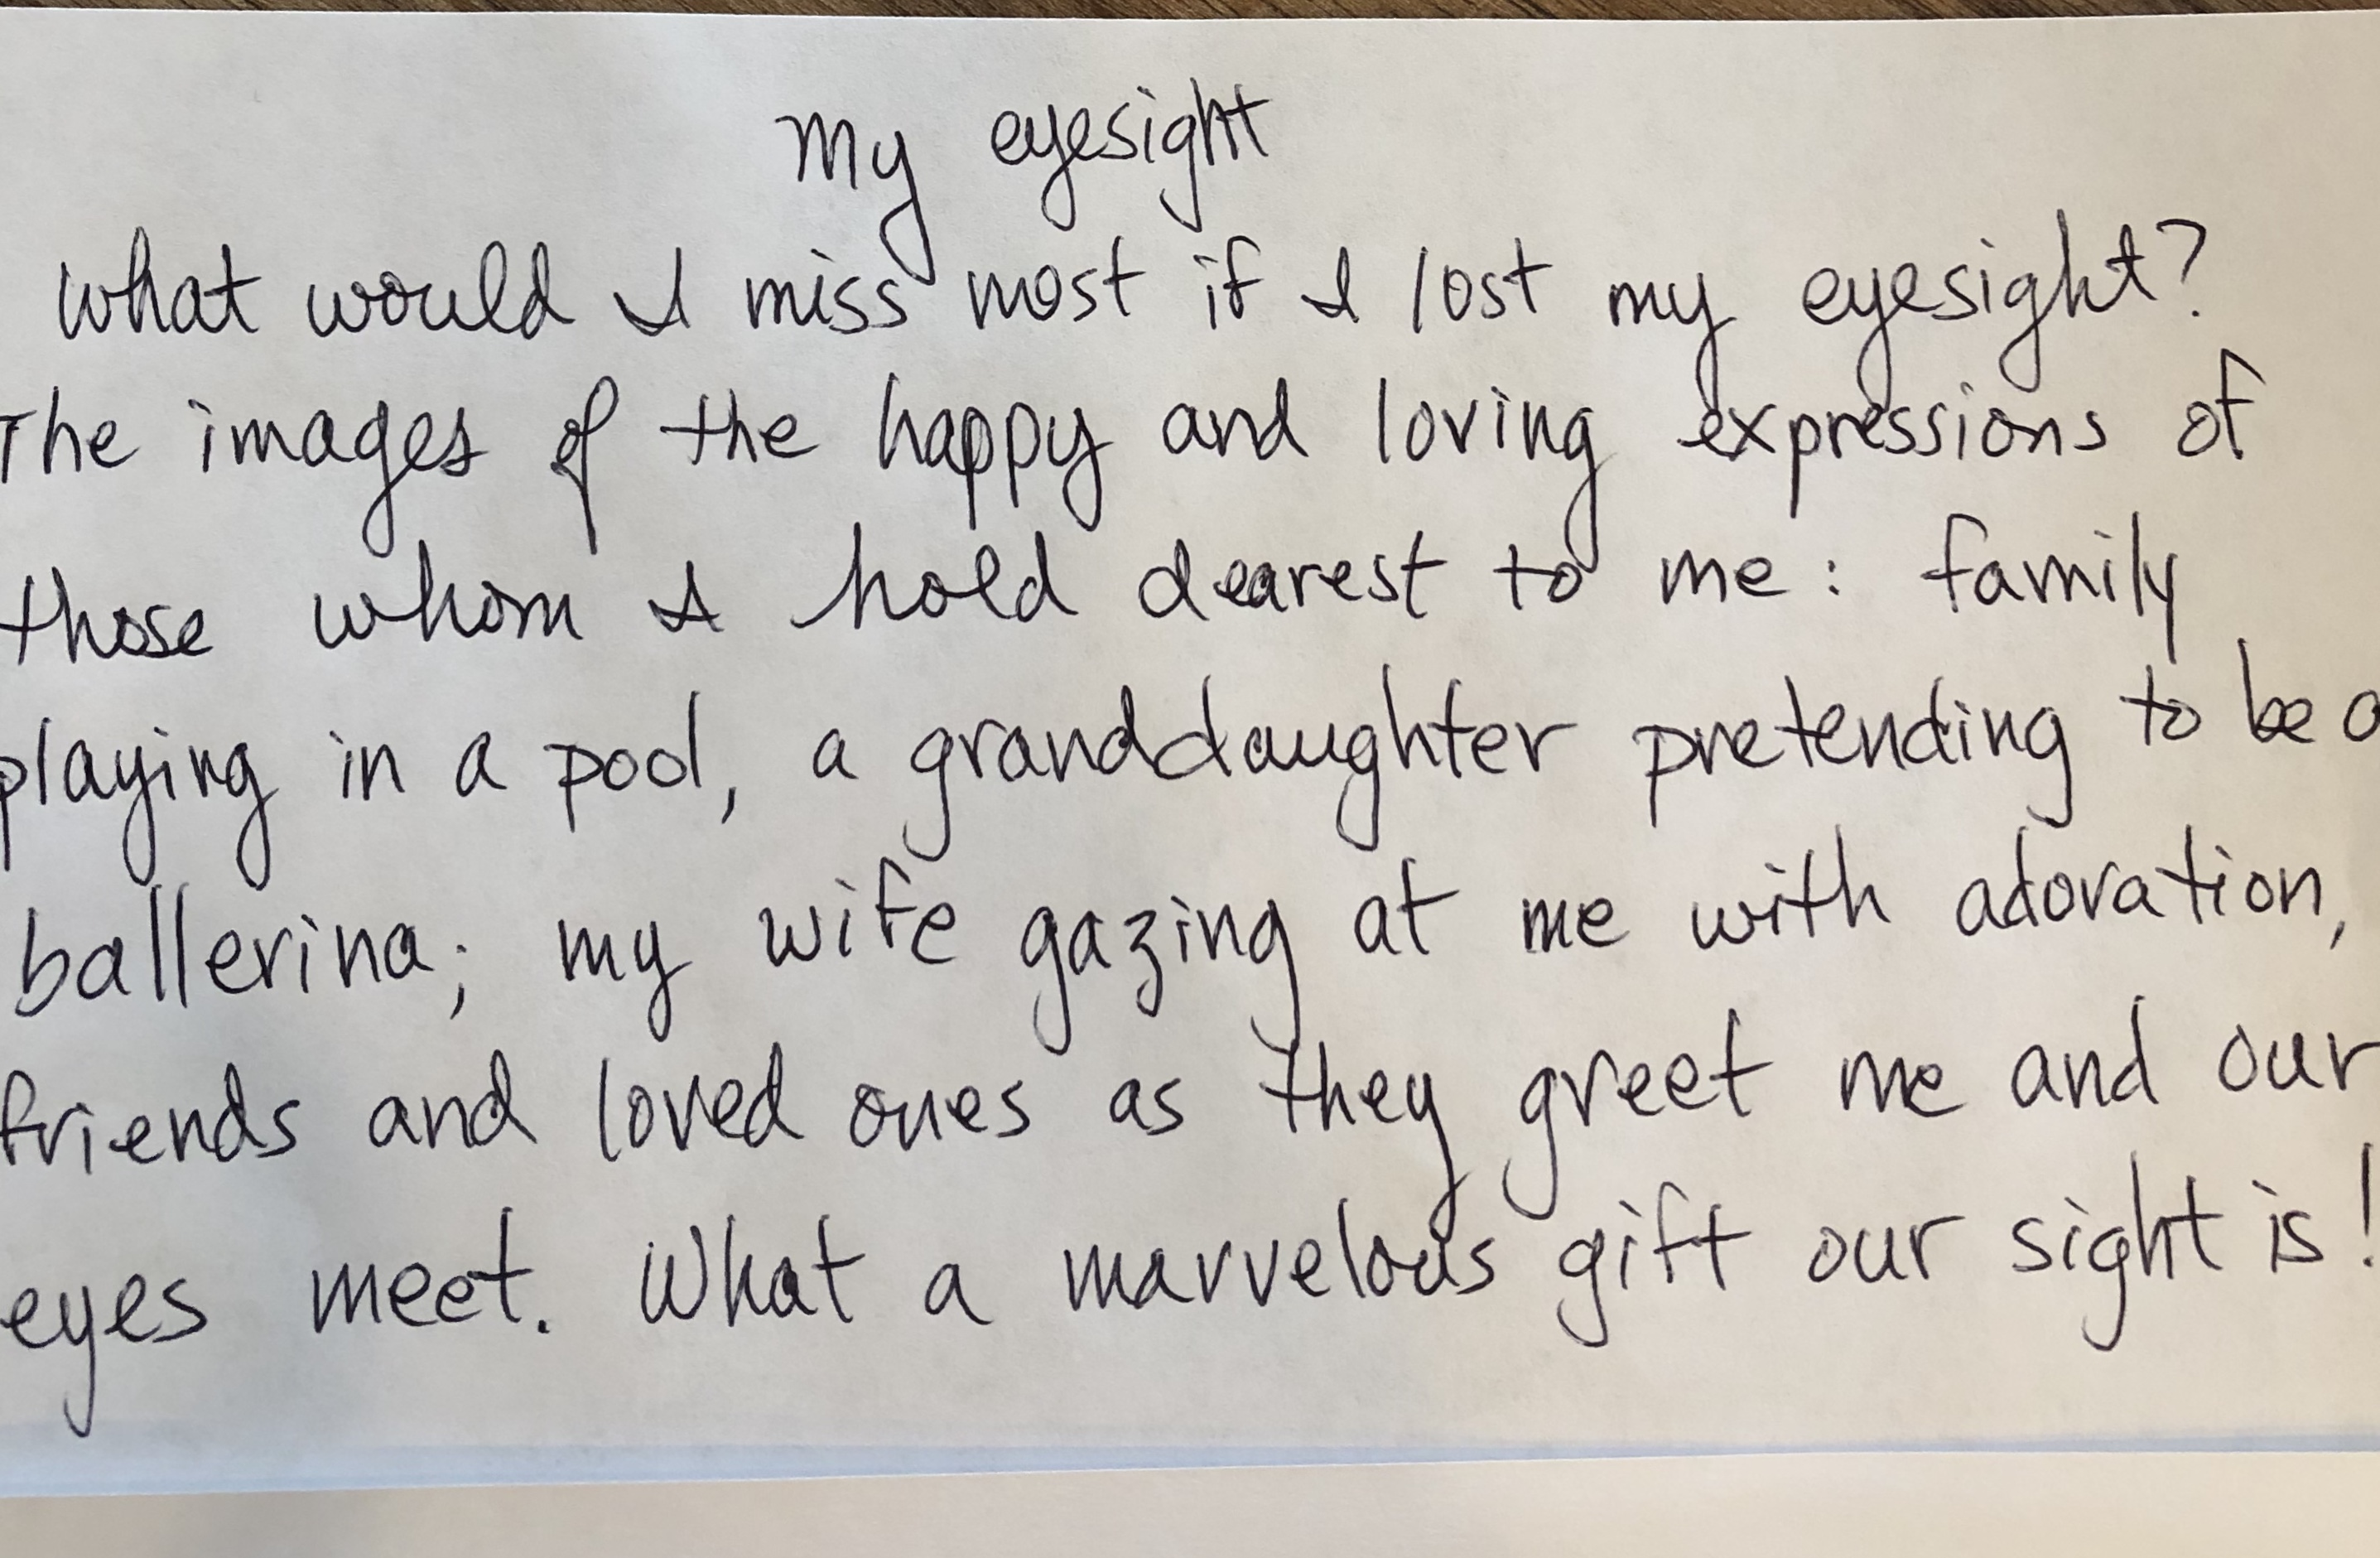 My eyesight
What would I miss most if I lost my eyesight?
The images of the happy and loving expressions of
those whom I hold dearest to me: family
playing in a pool, a granddaughter pretending to be a
ballerina; my wife gazing at me with adoration,
friends and loved ones as they greet me and our
eyes meet. What a marvelous gift our sight is!